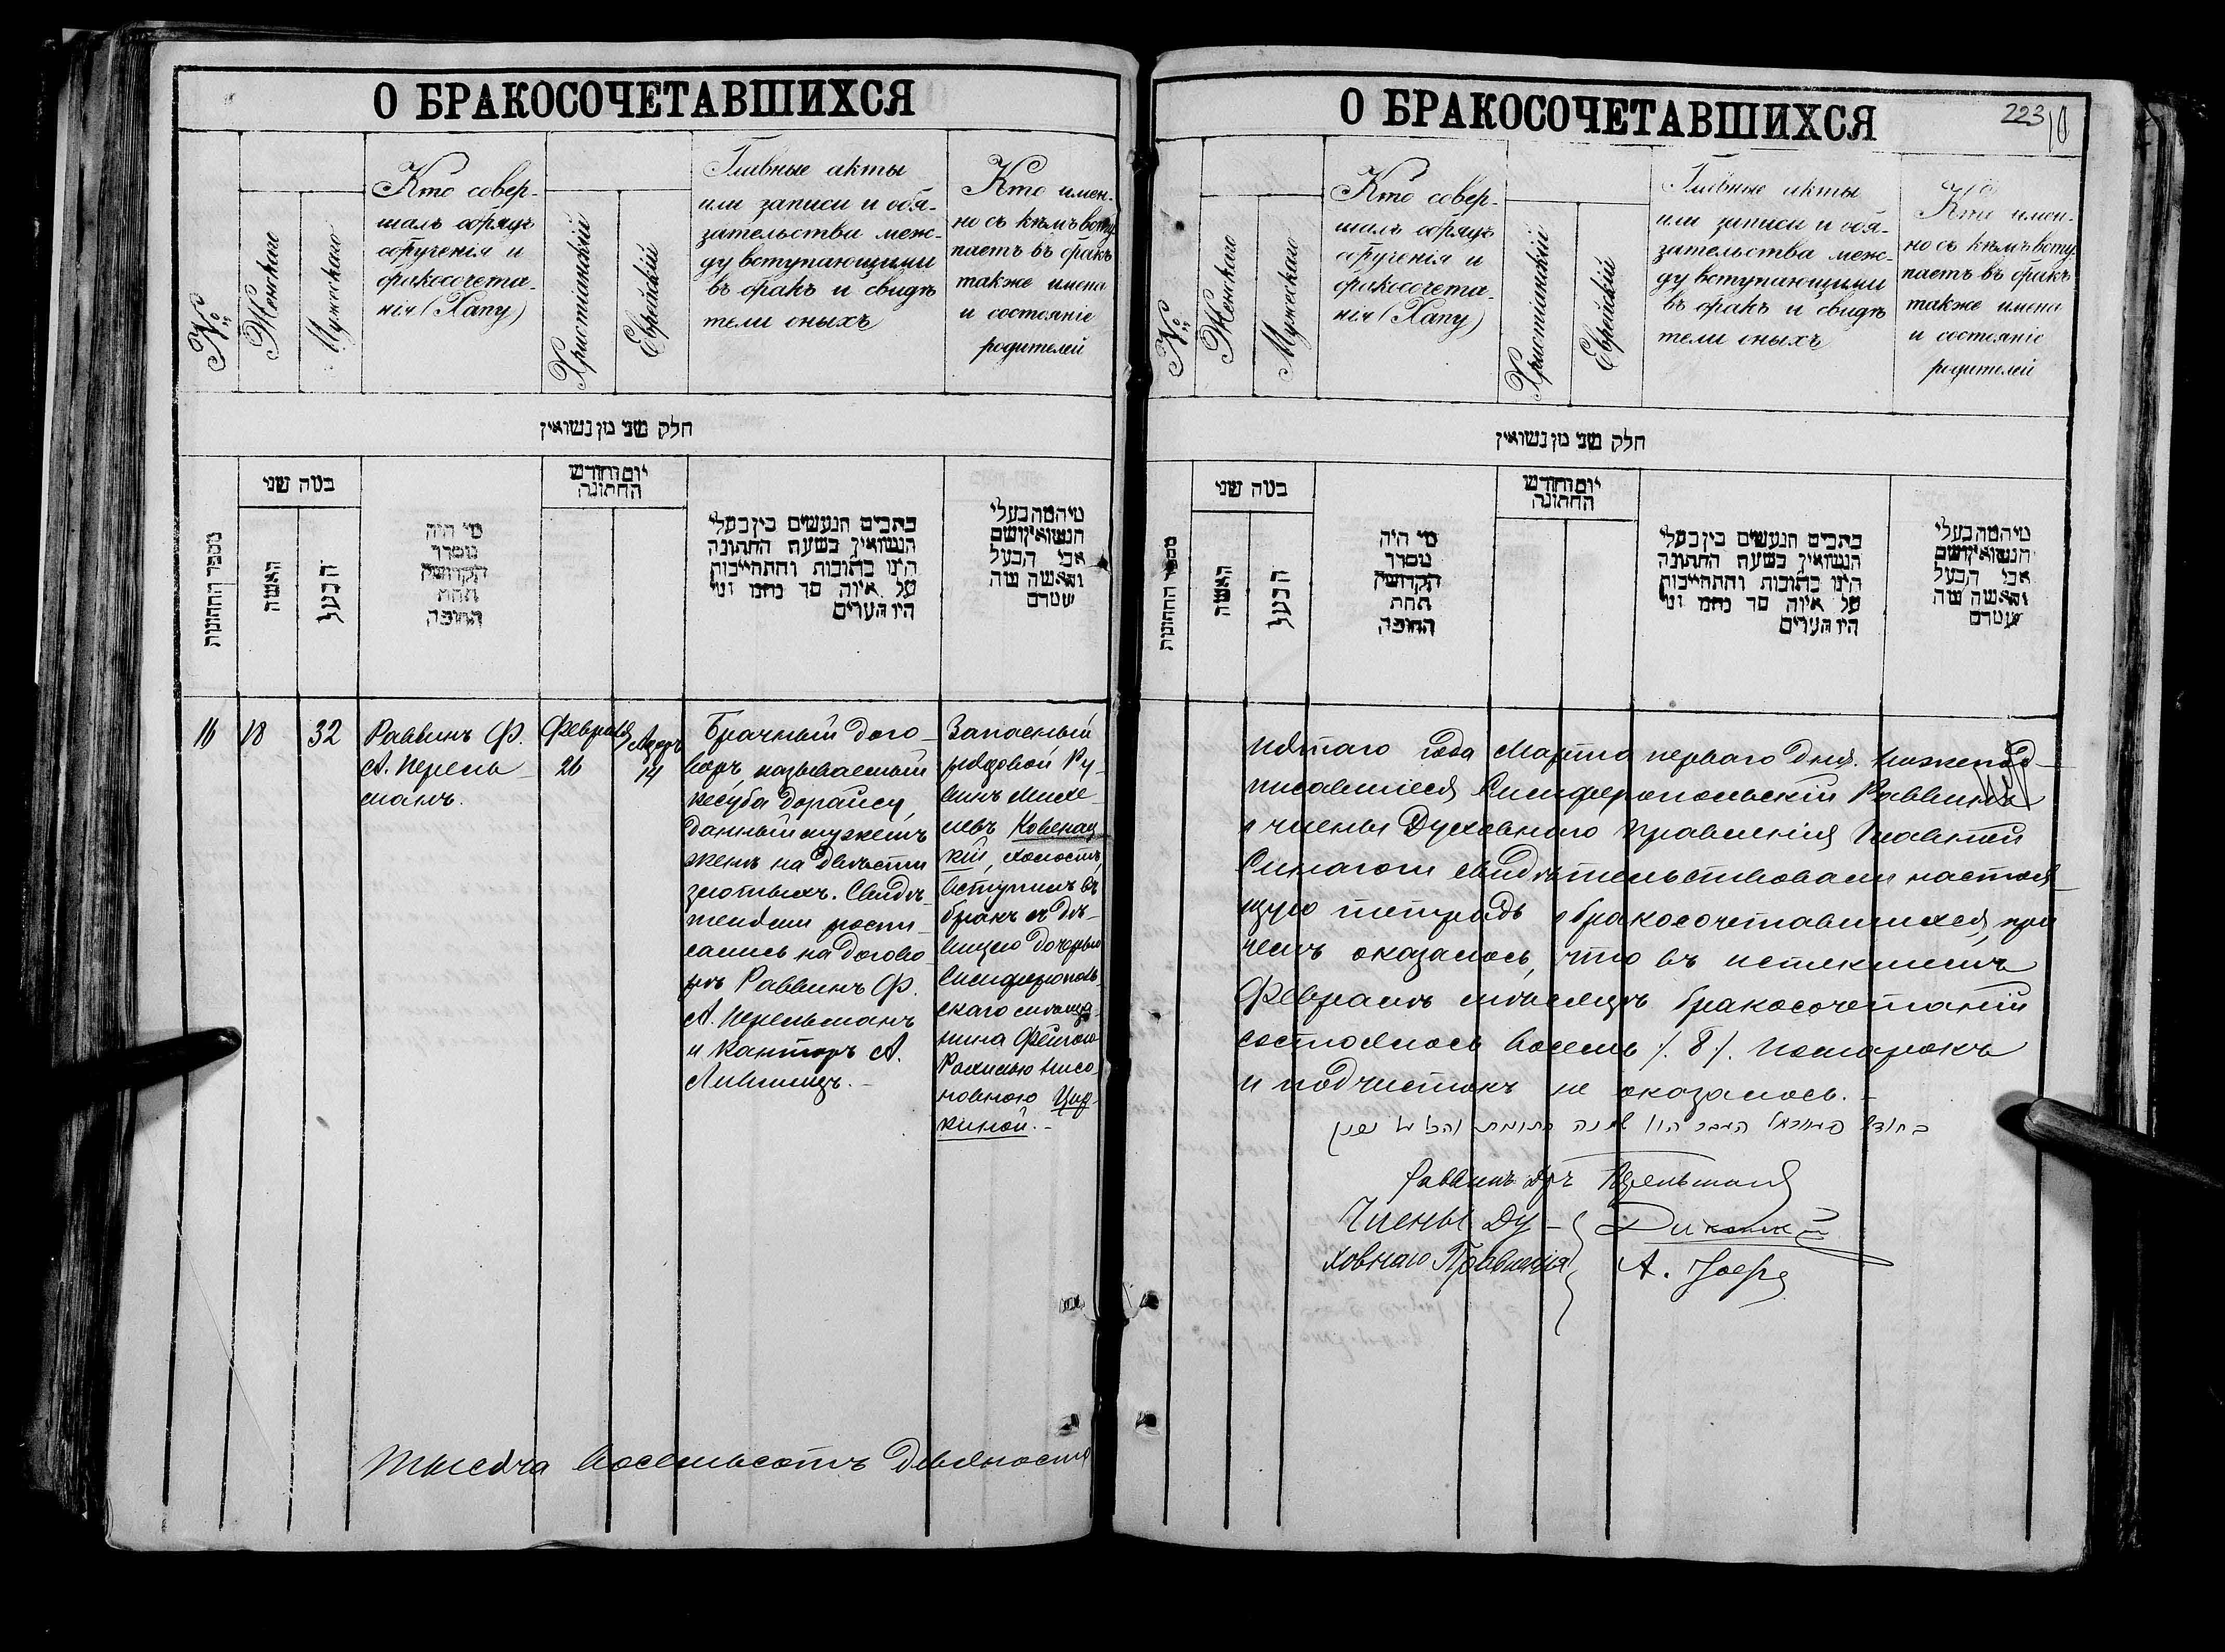 О БРАКОСОЧЕТАВШИХСЯ
№
Женскаго
Мужескаго
Кто совер-
шалъ обрядъ
обрученія и
бракосочета-
нія (Хапу)
Христіанскій
Еврейскій
Главные акты
или записи и обя-
зательства меж-
ду вступающими
въ бракъ и свидѣ
тели оныхъ
Кто имен-
но съ кѣмъ всту-
паетъ въ бракъ
также имена
и состояніе
родителей
חלק שני מן נשואין
מספר החתונות
במה שני
האשה
הבעל
מי היה
מסדר
הקדושין
תחת
החופה
יום וחודש
החתונה
כתבים הנעשים בין בעלי
הנשואין בשעת החתונה
היינו כתובות והתחייבות
על איזה סך נחמו ומי
היו העדים
מי המה בעלי
הנשואין ושם
אבי הבעל
והאשה מה
שמם
16
18
32
Раввинъ Ф.
А. Перель-
манъ.
Февраля
26
Адаръ
14
Брачный дого-
воръ, называемый
кесуба дораису,
данный мужемъ
женѣ на двѣсти
злотыхъ. Свидѣ-
телями роспи-
сались на догово-
рѣ Раввинъ Ф.
А. Перельманъ
и Канторъ А.
Лившицъ.-
Запасный
рядовой Ру-
винъ Михе-
левъ Ковенац-
кій, холостъ,
вступилъ въ
бракъ съ дѣ-
вицею дочерью
Симферополь-
скаго мѣща-
нина Фейгою
Рохилью Нисо-
новною Цир-
киной.-
Тысяча восемьсотъ девяносто
О БРАКОСОЧЕТАВШИХСЯ
223
10
№
Женскаго
Мужескаго
Кто совер-
шалъ обрядъ
обрученія и
бракосочета-
нія (Хапу)
Христіанскій
Еврейскій
Главные акты
или записи и обя-
зательства меж-
ду вступающими
въ бракъ и свидѣ
тели оныхъ
Кто имен-
но съ кѣмъ всту-
паетъ въ бракъ
также имена
и состояніе
родителей
חלק שני מן נשואין
מספר החתונות
במה שני
האשה
הבעל
מי היה
מסדר
הקדושין
תחת
החופה
יום וחודש
החתונה
כתבים הנעשים בין בעלי
הנשואין בשעת החתונה
היינו כתובות והתחייבות
על איזה סך נחמו ומי
היו העדים
מי המה בעלי
הנשואין ושם
אבי הבעל
והאשה מה
שמם
пятаго года Марта перваго дня. Нижепод-
писавшіеся Симферопольскій Раввинъ
и члены Духовнаго Правленія Главной
Синагоги свидѣтельствовали настоя-
щую тетрадь о бракосочетавшихся, при
чемъ оказалось, что въ истекшемъ
Февралѣ мѣсяцѣ бракосочетаній
состоялось восемь /. 8 /. Помарокъ
и подчистокъ не оказалось.-
Раввинъ Перельманъ
Члены Ду-
ховнаго Правленія
А. Іоффе